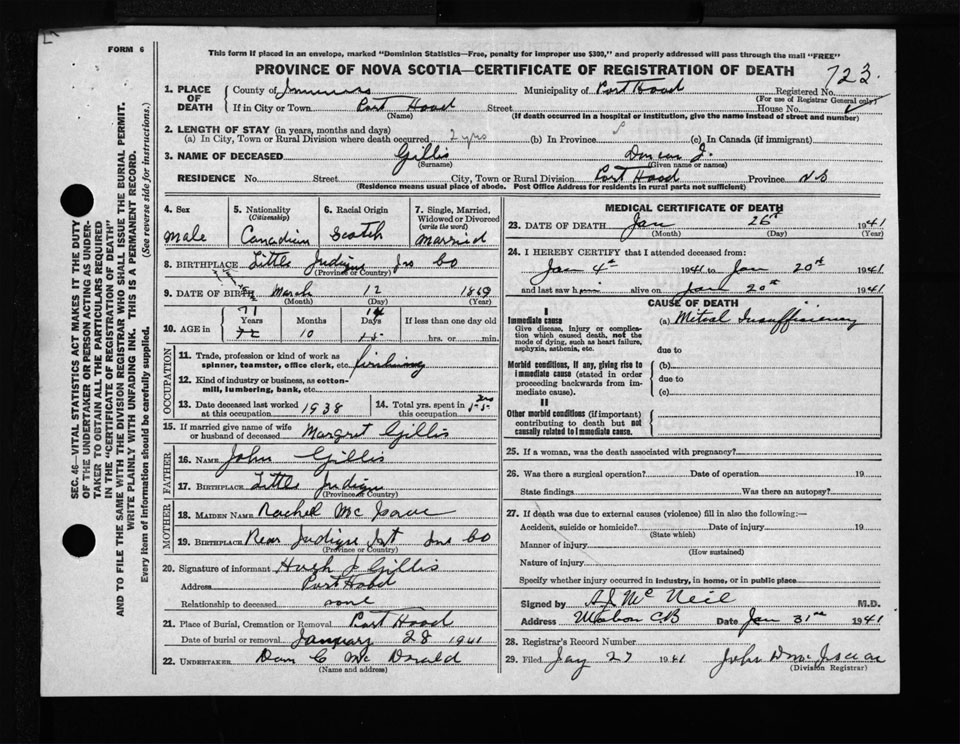 FORM 6
This form if placed in an envelope, marked "Dominion Statistics—Free, penalty for improper use $300," and properly addressed will pass through the mail "FREE"
PROVINCE OF NOVA SCOTIA—CERTIFICATE OF REGISTRATION OF DEATH
723
1. PLACE OF DEATH
County of Inverness Municipality of Port Hood Registered No.
(For use of Registrar General only)
If in City or Town Port Hood Street House No.
(Name) (If death occurred in a hospital or institution, give the name instead of street and number)
2. LENGTH OF STAY (in years, months and days)
(a) In City, Town or Rural Division where death occurred 2 yrs (b) In Province (c) In Canada (if immigrant)
3. NAME OF DECEASED Gillis Duncan J.
(Surname) (Given name or names)
RESIDENCE No. Street City, Town or Rural Division Port Hood Province NS
(Residence means usual place of abode. Post Office Address for residents in rural parts not sufficient)
SEC. 46—VITAL STATISTICS ACT MAKES IT THE DUTY
OF THE UNDERTAKER OR PERSON ACTING AS UNDER-
TAKER TO OBTAIN ALL THE PARTICULARS REQUIRED
IN THE "CERTIFICATE OF REGISTRATION OF DEATH"
AND TO FILE THE SAME WITH THE DIVISION REGISTRAR WHO SHALL ISSUE THE BURIAL PERMIT.
WRITE PLAINLY WITH UNFADING INK. THIS IS A PERMANENT RECORD.
Every item of information should be carefully supplied. (See reverse side for instructions.)
4. Sex
Male
5. Nationality
(Citizenship)
Canadian
6. Racial Origin
Scotch
7. Single, Married, Widowed or Divorced
(write the word)
Married
8. BIRTHPLACE Little Judique Inv Co
(Province or Country)
9. DATE OF BIRTH March 12 1869
(Month) (Day) (Year)
10. AGE in
71 14
Years Months Days If less than one day old
72 10 15 hrs. or min.
OCCUPATION
11. Trade, profession or kind of work as
spinner, teamster, office clerk, etc. fishing
12. Kind of industry or business, as cotton-
mill, lumbering, bank, etc.
13. Date deceased last worked
at this occupation 1938
14. Total yrs. spent in
this occupation 55 yrs
15. If married give name of wife
or husband of deceased Margret Gillis
FATHER
16. NAME John Gillis
17. BIRTHPLACE Little Judique
(Province or Country)
MOTHER
18. MAIDEN NAME Rachel Mc Isaac
19. BIRTHPLACE Rear Judique Int Inv Co
(Province or Country)
20. Signature of informant Hugh J Gillis
Address Port Hood
Relationship to deceased none
21. Place of Burial, Cremation or Removal Port Hood
Date of burial or removal January 28 1941
22. UNDERTAKER Dan C Mc Donald
(Name and address)
MEDICAL CERTIFICATE OF DEATH
23. DATE OF DEATH Jan 26th 1941
(Month) (Day) (Year)
24. I HEREBY CERTIFY that I attended deceased from:
Jan 4th 1941 to Jan 20th 1941
and last saw him alive on Jan 20th 1941
CAUSE OF DEATH
I
Immediate cause (a) Mitral Insufficiency
Give disease, injury or complica-
tion which caused death, not the
mode of dying, such as heart failure,
asphyxia, asthenia, etc.
due to
Morbid conditions, if any, giving rise to
immediate cause (stated in order
proceeding backwards from im-
mediate cause).
(b)
due to
(c)
II
Other morbid conditions (if important)
contributing to death but not
causally related to immediate cause.
25. If a woman, was the death associated with pregnancy?
26. Was there a surgical operation? Date of operation 19
State findings Was there an autopsy?
27. If death was due to external causes (violence) fill in also the following:—
Accident, suicide or homicide? Date of injury 19
(State which)
Manner of injury
(How sustained)
Nature of injury
Specify whether injury occurred in industry, in home, or in public place
Signed by AJ Mc Neil M.D.
Address Mabou CB Date Jan 31st 1941
28. Registrar's Record Number
29. Filed Jany 27 1941 John D McIsaac
(Division Registrar)